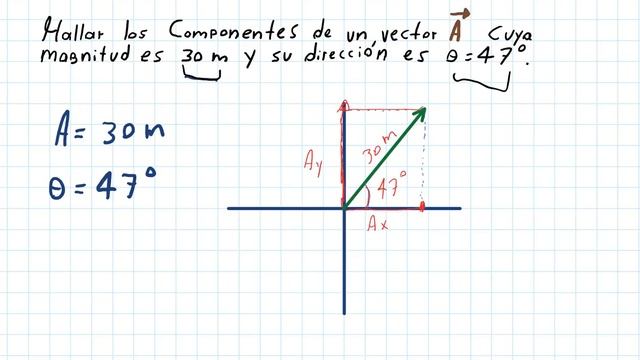 Hallar los Componentes de un vector A⃗ Cuya
magnitud es 30 m y su dirección es θ = 47°.
A = 30 m
θ = 47°
Ay
30 m
47°
Ax